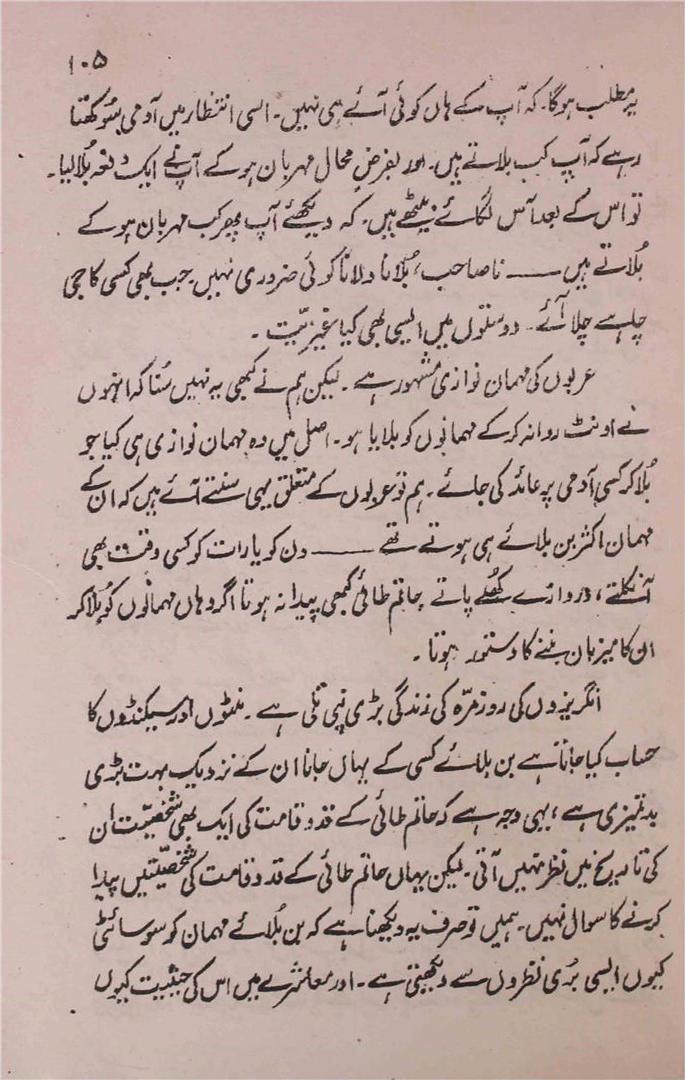 ۱۰۵
یہ مطلب ہوگا۔ کہ آپ کے ہاں کوئی آئے ہی نہیں۔ اسی انتظار میں آدمی سُوکھتا
رہے کہ آپ کب بلاتے ہیں۔ اور بفرضِ محال مہربان ہو کے آپ نے ایک دفعہ بُلا لیا۔
تو اس کے بعد آس لگائے بیٹھے ہیں۔ کہ دیکھئے آپ پھر کب مہربان ہو کے
بُلاتے ہیں —— نا صاحب، بُلانا دلانا کوئی ضروری نہیں۔ جب بھی کسی کا جی
چاہے چلا آئے۔ دوستوں میں ایسی بھی کیا غیریّت۔
عربوں کی مہمان نوازی مشہور ہے۔ لیکن ہم نے کبھی یہ نہیں سُنا کہ انہوں
نے اونٹ روانہ کر کے مہمانوں کو بلایا ہو۔ اصل میں وہ مہمان نوازی ہی کیا جو
بُلا کر کسی آدمی پر عائد کی جائے۔ ہم تو عربوں کے متعلق یہی سنتے آئے ہیں کہ ان کے
مہمان اکثر بن بلائے ہی ہوتے تھے —— دن کو یا رات کو کسی وقت بھی
آ نکلتے، دروازے کُھلے پاتے۔ حاتم طائی کبھی پیدا نہ ہوتا اگر وہاں مہمانوں کو بُلا کر
ان کا میزبان بننے کا دستور ہوتا۔
انگریزوں کی روزمرّہ کی زندگی بڑی نپی تلی ہے۔ منٹوں اور سیکنڈوں کا
حساب کیا جاتا ہے بن بلائے کسی کے یہاں جانا ان کے نزدیک بہت بڑی
بدتمیزی ہے، یہی وجہ ہے کہ حاتم طائی کے قد و قامت کی ایک بھی شخصیّت ان
کی تاریخ میں نظر نہیں آتی۔ لیکن یہاں حاتم طائی کے قد و قامت کی شخصیّتیں پیدا
کرنے کا سوال نہیں۔ ہمیں تو صرف یہ دیکھنا ہے کہ بن بُلائے مہمان کو سوسائٹی
کیوں ایسی بُری نظروں سے دیکھتی ہے۔ اور معاشرے میں اس کی حیثیت کیوں